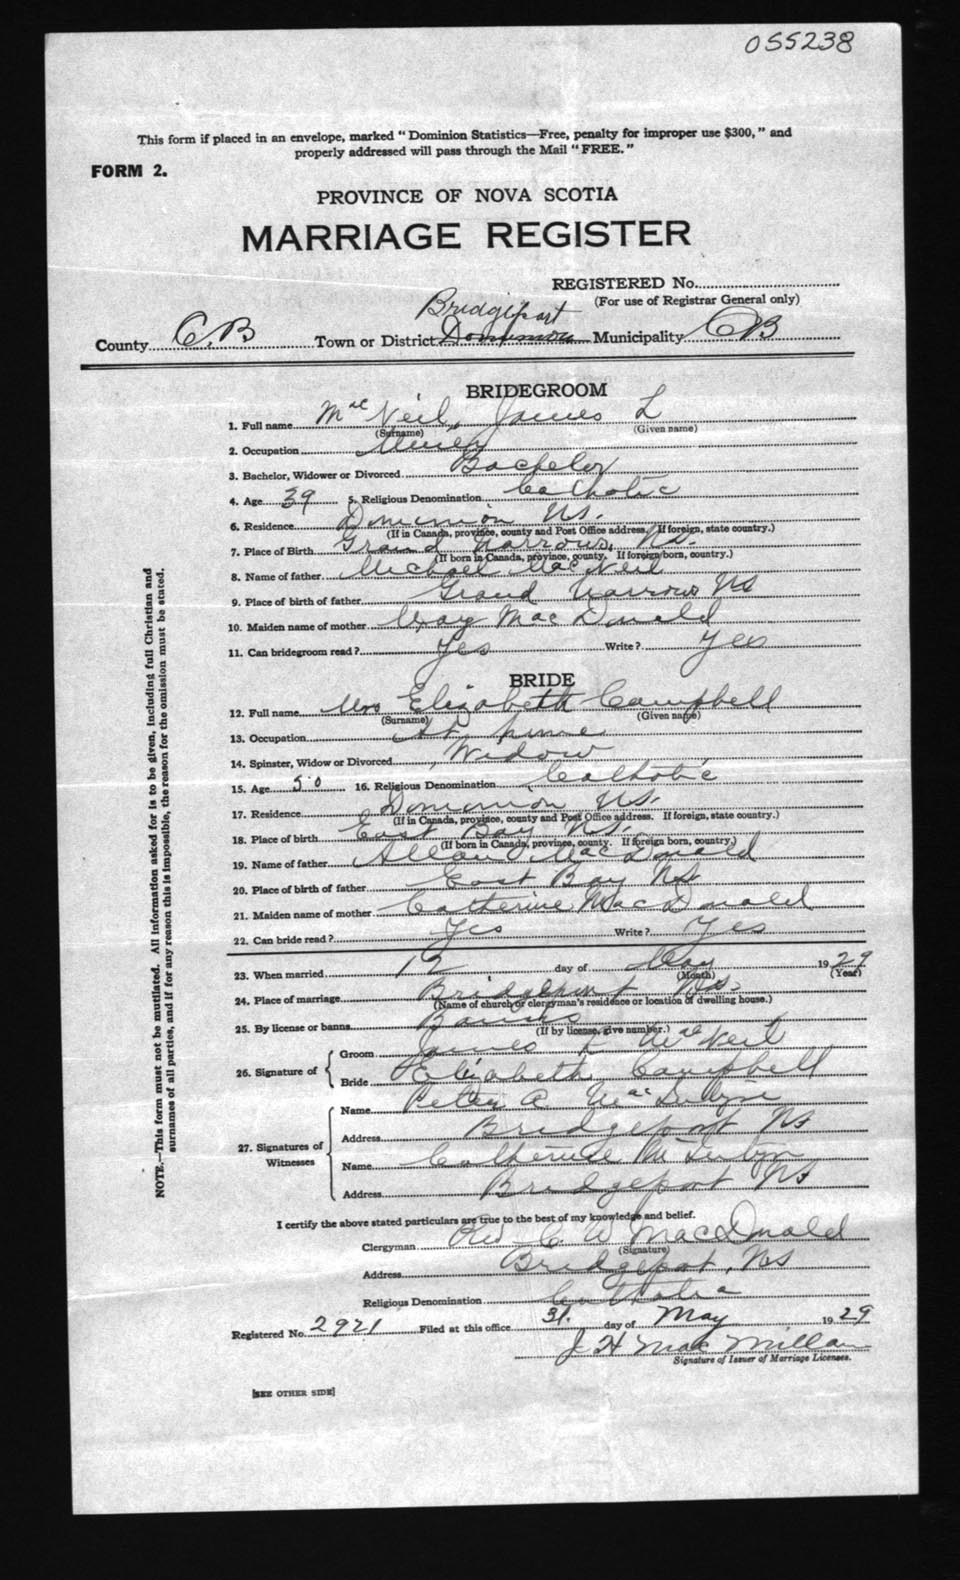 055238
This form if placed in an envelope, marked "Dominion Statistics—Free, penalty for improper use $300," and
properly addressed will pass through the Mail "FREE."
FORM 2.
PROVINCE OF NOVA SCOTIA
MARRIAGE REGISTER
REGISTERED No.
(For use of Registrar General only)
Bridgeport
County C.B Town or District Dominion Municipality CB
BRIDEGROOM
1. Full name MacNeil, James L
(Surname) (Given name)
2. Occupation Miner
3. Bachelor, Widower or Divorced Bachelor
4. Age 39 5. Religious Denomination Catholic
6. Residence Dominion NS.
(If in Canada, province, county and Post Office address. If foreign, state country.)
7. Place of Birth Grand Narrows, NS.
(If born in Canada, province, county. If foreign born, country.)
8. Name of father Michael MacNeil
9. Place of birth of father Grand Narrows NS
10. Maiden name of mother MacDonald
11. Can bridegroom read? Yes Write? Yes
BRIDE
12. Full name Mrs Elizabeth Campbell
(Surname) (Given name)
13. Occupation At home
14. Spinster, Widow or Divorced Widow
15. Age 50 16. Religious Denomination Catholic
17. Residence Dominion NS.
(If in Canada, province, county and Post Office address. If foreign, state country.)
18. Place of birth East Bay N.S.
(If born in Canada, province, county. If foreign born, country.)
19. Name of father Allan MacDonald
20. Place of birth of father East Bay NS
21. Maiden name of mother Catherine MacDonald
22. Can bride read? Yes Write? Yes
23. When married 12 day of May 1929
(Month) (Year)
24. Place of marriage Bridgeport NS.
(Name of church or clergyman's residence or location of dwelling house.)
25. By license or banns Banns
(If by license, give number.)
26. Signature of Groom James L MacNeil
Bride Elizabeth Campbell
27. Signatures of Witnesses
Name Peter A
Address Bridgeport NS
Name Catherine
Address Bridgeport NS
I certify the above stated particulars are true to the best of my knowledge and belief.
Clergyman Rev C W MacDonald
(Signature)
Address Bridgeport, NS
Religious Denomination Catholic
Registered No. 2921 Filed at this office 31. day of May 1929
J H MacMillan
Signature of Issuer of Marriage Licenses.
[SEE OTHER SIDE]
NOTE.—This form must not be mutilated. All information asked for is to be given, including full Christian and
surnames of all parties, and if for any reason this is impossible, the reason for the omission must be stated.